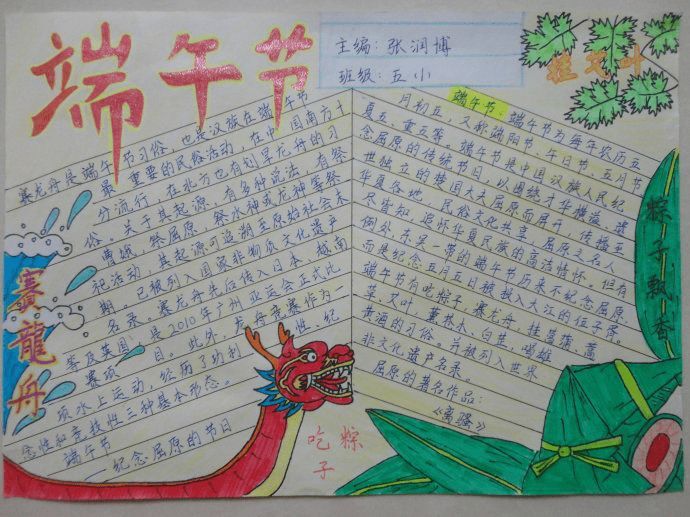 端午节
主编:张润博
班级:五小
挂艾叶
赛龙舟是端午节习俗,也是汉族在端午节
最重要的民俗活动,在中国南方十
分流行,在北方也有划旱龙舟的习
俗。关于其起源,有多种说法,有祭
曹娥,祭屈原,祭水神或龙神等祭
祀活动,其起源可追溯至原始社会末
期。已被列入国家非物质文化遗产
名录。赛龙舟先后传入日本、越南
等及英国,是2010年广州亚运会正式比
赛项目。此外,龙舟竞赛作为一
项水上运动,经历了功利性、纪
念性和竞技性三种基本形态。
端午节
——纪念屈原的节日
端午节:端午节为每年农历五
月初五,又称端阳节、午日节、五月节
夏五、重五等。端午节是中国汉族人民纪
念屈原的传统节日,以围绕才华横溢、遗
世独立的楚国大夫屈原而展开,传播至
华夏各地,民俗文化共享,屈原之名人
尽皆知,追怀华夏民族的高洁情怀。但有
例外东吴一带的端午节历来不纪念屈原,
而是纪念五月五日被投入大江的伍子胥。
端午节有吃粽子,赛龙舟,挂菖蒲、蒿
草、艾叶,薰苍术、白芷,喝雄
黄酒的习俗。并被列入世界
非文化遗产名录。
屈原的著名作品:
《离骚》
赛龍舟
粽子飘香
吃粽子